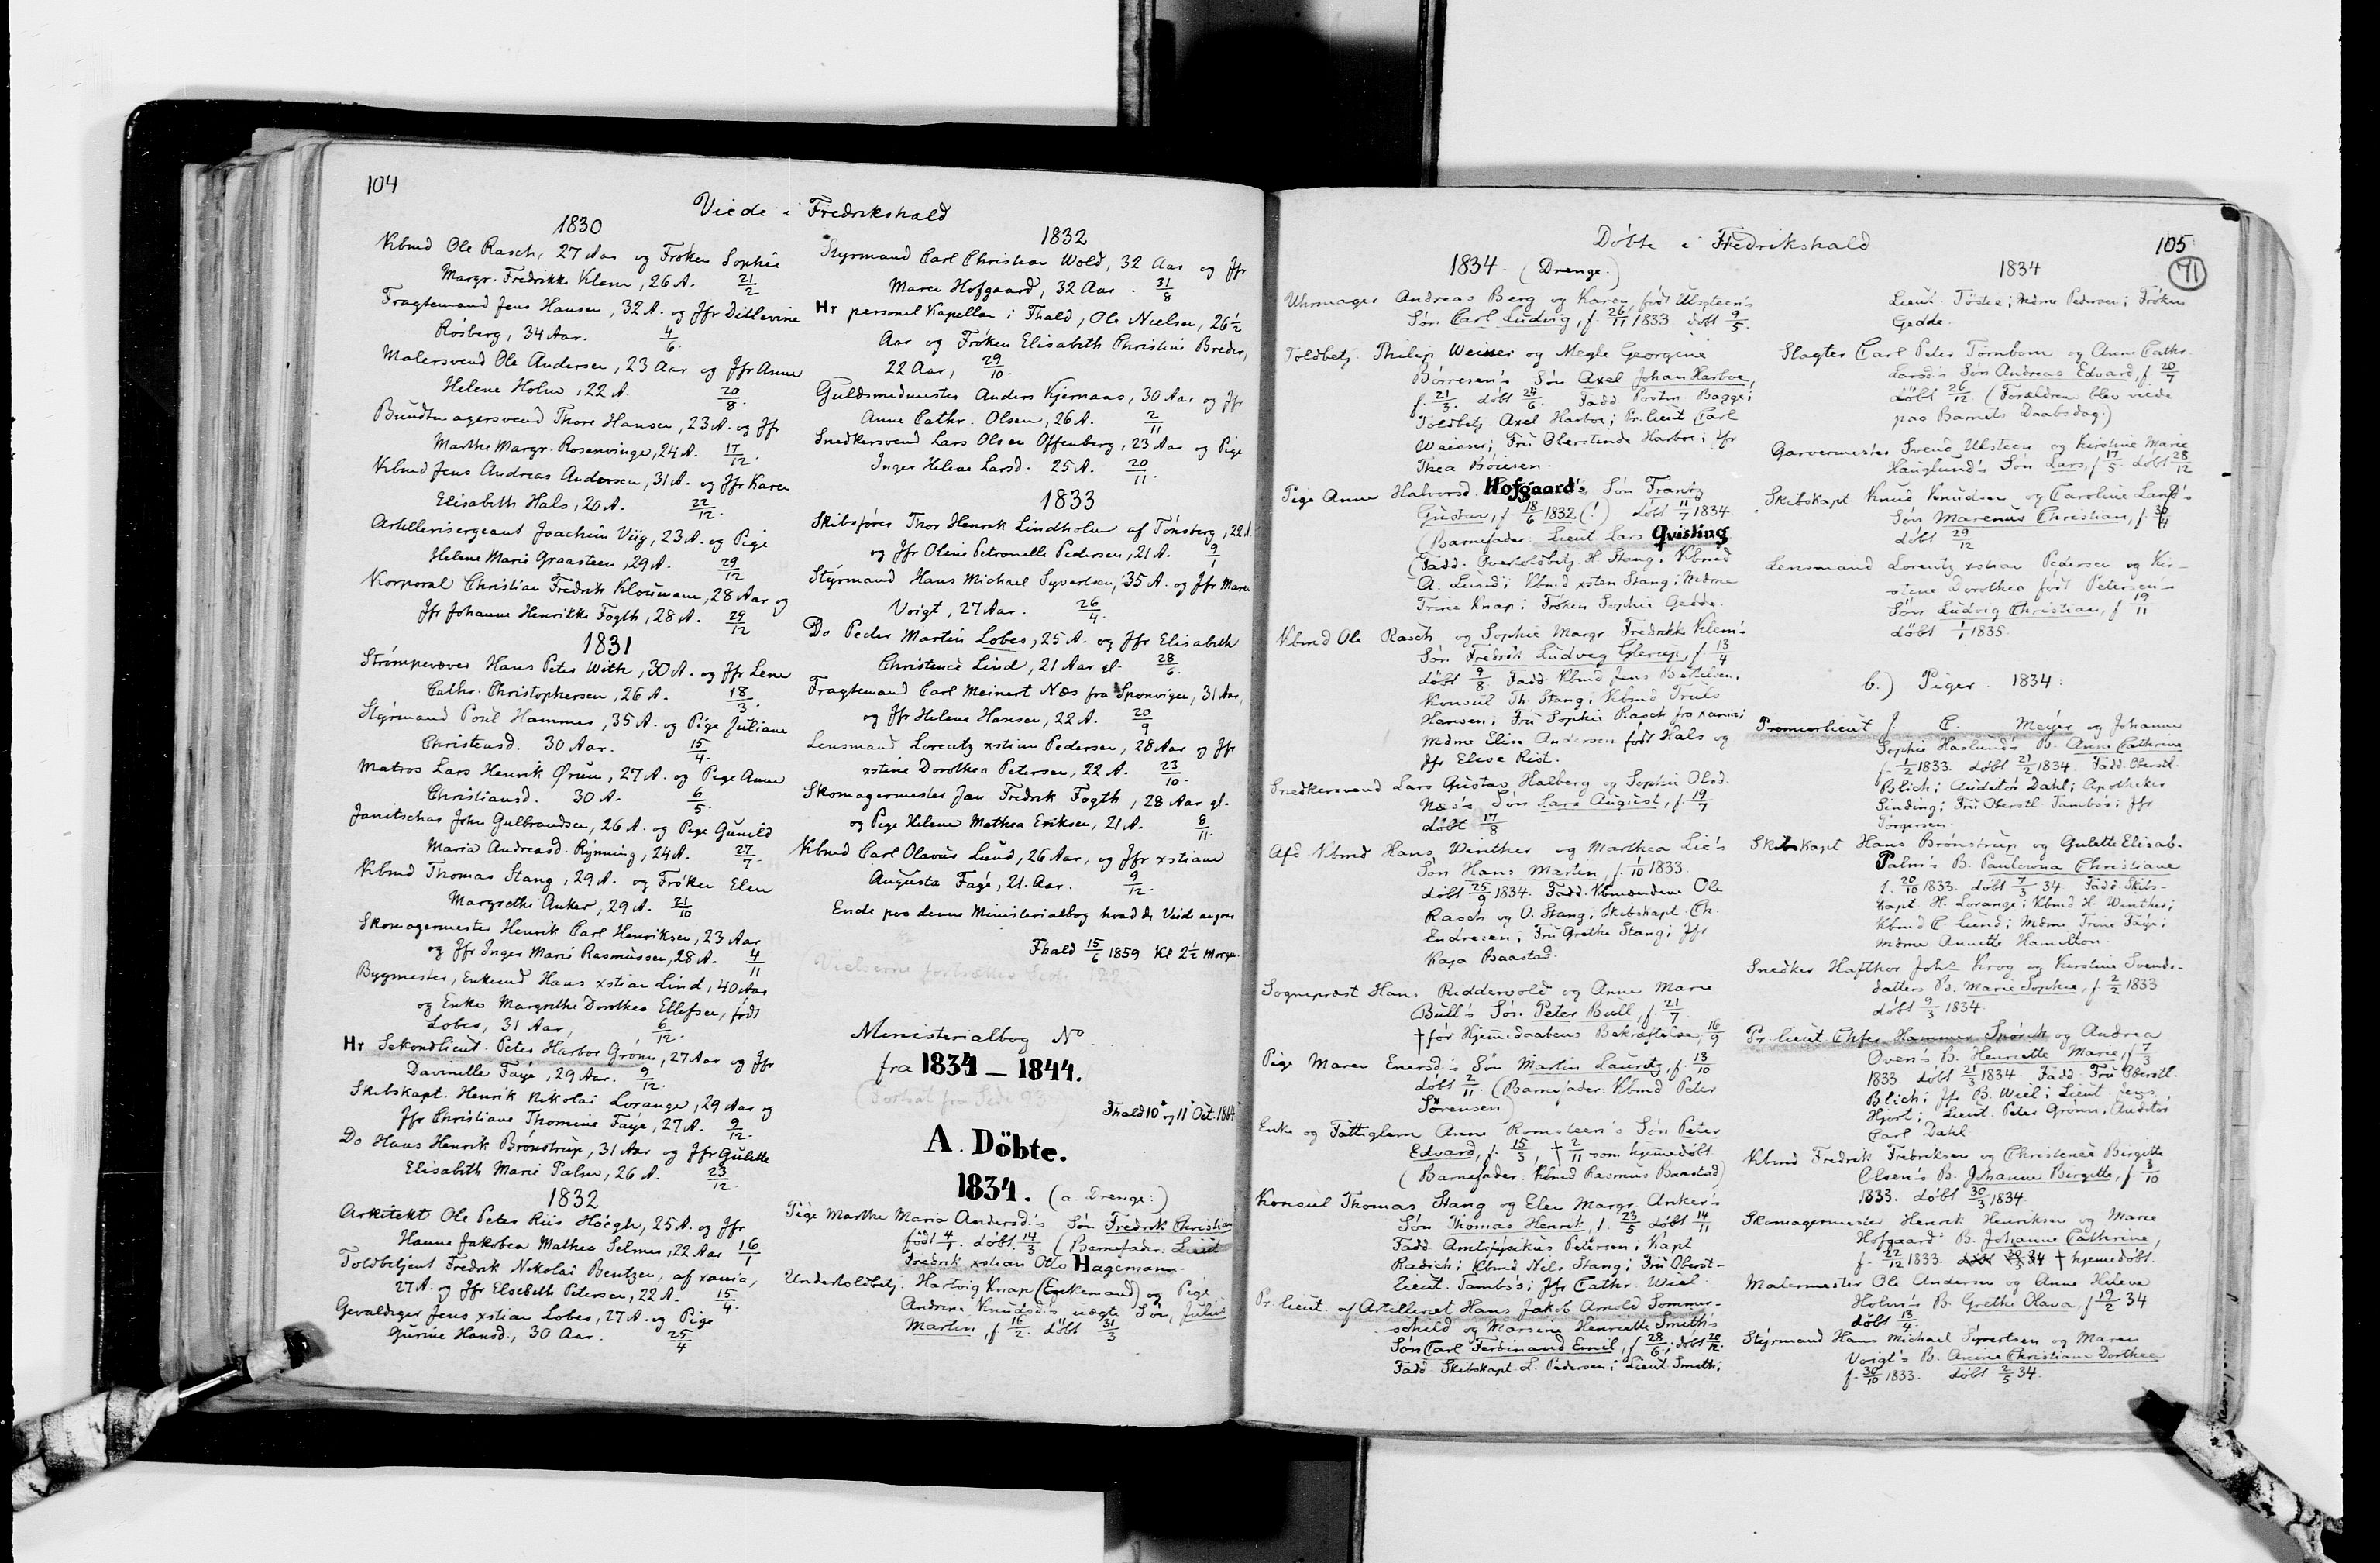 104
Viede i Fredrikshald
1830
Kbmd Ole Rasch, 27 Aar og Frøken Sophie
Margr. Fredrikke Klem, 26 A. 21/2
Fragtemand Jens Hansen, 32 A. og Jfr Ditlevine
Rösberg, 34 Aar. 4/6.
Malersvend Ole Andersen, 23 Aar og Jfr Anne
Helene Holm, 22 A. 20/8.
Bundtmagersvend Thore Hansen, 23 A. og Jfr
Marthe Margr. Rosenvinge, 24 A. 17/12.
Kbmd Jens Andreas Andersen, 31 A. og Jfr Karen
Elisabeth Hals, 20 A. 22/12.
Artillerisergeant Joachim Viig, 23 A. og Pige
Helene Marie Graasteen, 29 A. 29/12
Korporal Christian Fredrik Kloumann, 28 Aar og
Jfr Johanne Henrikke Fogth, 28 A. 29/12
1831
Strömpevæver Hans Peter With, 30 A. og Jfr Lene
Cathr. Christophersen, 26 A. 18/3.
Styrmand Poul Hammer, 35 A. og Pige Juliane
Christensd. 30 Aar. 15/4.
Matros Lars Henrik Ørum, 27 A. og Pige Anne
Christiansd. 30 A. 6/5.
Janitschar John Gulbrandsen, 26 A. og Pige Gunild
Maria Andreasd. Rynning, 24 A. 27/7.
Kbmd Thomas Stang, 29 A. og Frøken Elen
Margrethe Anker, 29 A. 21/10
Skomagermester Henrik Carl Henriksen, 23 Aar
og Jfr Inger Marie Rasmussen, 28 A. 4/11
Bygmester, Enkemd Hans xstian Lind, 40 Aar
og Enke Margrethe Dorothea Ellefsen, født
Lobes, 31 Aar, 6/12.
Hr Sekondlieut. Peter Harboe Grönn, 27 Aar og Jfr
Davinelle Faye, 29 Aar. 9/12.
Skibskapt. Henrik Nikolai Lorange, 29 Aar og
Jfr Christiane Thomine Faye, 27 A. 9/12.
Do Hans Henrik Brønstrup, 31 Aar og Jfr Gulette
Elisabeth Marie Palm, 26 A. 23/12.
1832
Arkitekt Ole Peter Riis Höegh, 25 A. og Jfr
Hanne Jakobea Mathea Selmer, 22 Aar 16/1
Toldbetjent Fredrik Nikolai Bentzen, af xania,
27 A. og Jfr Elsebeth Petersen, 22 A. 15/4.
Gevaldiger Jens xstian Lobes, 27 A. og Pige
Gurine Hansd., 30 Aar. 25/4
1832
Styrmand Carl Christian Wold, 32 Aar og Jfr
Maren Hofgaard, 32 Aar. 31/8
Hr personel Kapellan i Fhald, Ole Nielsen, 26½
Aar og Frøken Elisabeth Christine Breder,
22 Aar, 29/10.
Guldsmedmester Anders Kjernaas, 30 Aar og Jfr
Anne Cathr. Olsen, 26 A. 2/11
Snedkersvend Lars Olsen Offenberg, 23 Aar og Pige
Inger Helene Larsd. 25 A. 20/11.
1833
Skibsfører Thor Henrik Lindholm af Tönsberg, 22 A.
og Jfr Oline Petronelle Pedersen, 21 A. 9/1
Styrmand Hans Michael Syvertsen, 35 A. og Jfr Maren
Voigt, 27 Aar. 26/4.
Do Peder Martin Lobes, 25 A. og Jfr Elisabeth
Christence Lind, 21 Aar gl. 28/6.
Fragtemand Carl Meinert Næs fra Sponvigen, 31 Aar,
og Jfr Helene Hansen, 22 A. 20/9
Lensmand Lorentz xstian Pedersen, 28 Aar og Jfr
xstine Dorothea Petersen, 22 A. 23/10.
Skomagermester Jan Fredrik Fogth, 28 Aar gl.
og Pige Helene Mathea Eriksen, 21 A. 8/11.
Kbmd Carl Olaves Lund, 26 Aar, og Jfr xstiane
Augusta Faye, 21. Aar. 9/12.
Ende paa denne Ministerialbog hvad de Viede angaar
Fhald 15/6 1859 Kl 2½ Morgen.
(Vielserne fortsættes Side 122
Ministerialbog No
fra 1834 — 1844.
(Fortsat fra Side 93
Fhald 10de og 11te Oct. 1864
A. Döbte.
1834. (a. Drenge:)
Pige Marthe Maria Andersd.'s Søn Fredrik Christian
født 4/1. döbt 14/3 (Barnefader: Lieut
Fredrik xstian Otto Hagemann.
Undertoldbetj. Hartvig Knap (Enkemand) og Pige
Andrine Knudsd.'s uægte Søn, Julius
Martin, f. 16/2. döbt 31/3
Döbte i Fredrikshald
105
71
1834. (Drenge.)
Uhrmager Andreas Berg og Karen, født Ulsteen's
Søn Carl Ludvig, f. 26/11 1833. döbt 9/5.
Toldbetj. Philip Weiner og Megle Georgine
Börresen's Søn Axel Johan Harboe,
f. 21/3. döbt 24/6. Fadd Postm. Bagge;
Toldbetj. Axel Harboe; Pr. lieut Carl
Weiener; Frü Oberstinde Harboe; Jfr
Thea Böiesen.
Pige Anne Halvorsd. Hofgaard's Søn Frantz
Gustav, f. 18/6 1832 (!) döbt 11/7 1834.
(Barnefader. Lieut Lars Qvisling
(Fadd. Overtoldbetj. H. Stang; Kbmd
A. Lund; Kbmd xsten Stang; Mdme
Trine Knap; Frøken Sophie Gedde.
Kbmd Ole Rasch og Sophie Margr. Fredrikke Klem's
Søn Fredrik Ludvig Glerup, f. 13/4
döbt 9/8. Fadd Kbmd Jens
Konsul Th. Stang; Kbmd Truls
Hansen; Frü Sophie Rasch fra xania;
Mdme Elise Andersen født Hals og
Jfr Elise Rist.
Snedkersvend Lars Gustav Halberg og Sophie Olsd.
Næs's Søn Lars August, f. 19/7
döbt 17/8
Afd. Kbmd Hans Winther og Marthea Lie's
Søn Hans Martin, f. 1/10 1833.
döbt 25/9 1834. Fadd. Kbmændene Ole
Rasch og O. Stang; Skibskapt. Ch.
Endresen; Frü Grethe Stang; Jfr
Kaja Baastad.
Sognepræst Hans Riddervold og Anne Marie
Bull's Søn Peter Bull, f. 21/7
† før Hjemedaabens Bekræftelse, 16/9
Pige Maren Enersd's Søn Martin Lauritz, f. 13/10
döbt 2/11. (Barnefader. Kbmd Peter
Sørensen)
Enke og Fattiglem Anne Romsteen's Søn Peter
Edvard, f. 15/3, † 2/11 som hjemedöbt.
(Barnefader: Kbmd Rasmus Baastad)
Konsul Thomas Stang og Elen Margr. Anker's
Søn Thomas Henrik, f. 23/5 döbt 14/11
Fadd. Amtsfysikus Petersen; Kapt
Radich; Kbmd Nels Stang; Frü Oberst-
lieut. Tambs's; Jfr Cathr. Wiel.
Pr. lieut. af Artilleriet Hans Jakob Arnold Sommer-
schield og Marsine Henriette Smith's
Søn Carl Ferdinand Emil, f 28/6; döbt 20/12.
Fadd. Skibskapt. L. Pedersen; Lieut. Smith;
1834
Lieut. Töshe; Mdme Pedersen; Frøken
Gedde.
Slagter Carl Peter Törnbom og Anne Cathr.
Larsd's Søn Andreas Edvard, f 20/7
döbt 26/12 (Forældrene blev viede
paa Barnets Daabsdag.)
Garvermester Svend Ulsteen og Kirstine Marie
Hauglund's Søn Lars, f 17/5. döbt 28/12
Skibskapt. Knud Knudsen og Caroline Land's
Søn Marenus Christian, f. 30/4
döbt 29/12
Lensmand Lorentz xstian Pedersen og Kir-
stine Dorothea født Petersen's
Søn Ludvig Christian, f 19/11
döbt 1/1 1835.
b.) Piger 1834:
Premierlieut J. C. Meyer og Johanne
Sophie Haslund's B. Anne Cathrine
f. 1/2 1833. döbt 21/2 1834. Fadd. Oberstl.
Blich; Auditör Dahl; Apotheker
Sinding; Frü Oberstl. Tambs's; Jfr
Jörgensen.
Skibskapt Hans Brønstrup og Gulette Elisab.
Palm's B. Paulowna Christiane
f. 20/10 1833. döbt 7/3 34 Fadd. Skibs-
kapt. H. Lorange; Kbmd H. Winther;
Kbmd C Lund; Mdme Trine Faye;
Mdme Annette Hamilton.
Snedker Hafthor Johs Krog og Kirstine Svends-
datters B. Marie Sophie, f. 2/2 1833
döbt 9/3 1834.
Pr. lieut Chfer Hammer Spörck og Andrea
Oven's B. Henriette Marie, f 7/3
1833. döbt 21/3 1834. Fadd. Frü Oberstl.
Blich; Jfr B. Wiel; Lieut. Jens
Hjort; Lieut. Peter Grönn; Auditör
Carl Dahl
Kbmd Fredrik Fredriksen og Christence Birgitte
Olsen's B. Johanne Birgitte, f. 3/10
1833. döbt 30/3 1834.
Skomagermester Henrik Henriksen og Marie
Hofgaard's B. Johanne Cathrine,
f. 22/12 1833. döbt 28/3 34 † hjemedöbt.
Malermester Ole Andersen og Anne Helene
Holm's B. Grethe Olava, f 19/2 34
döbt 13/4.
Styrmand Hans Michael Syvertsen og Maren
Voigt's B. Anine Christiane Dorthea
f. 30/10 1833. döbt 2/5 34.